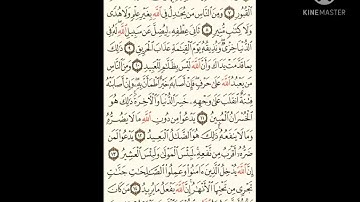 Made with
KINEMASTER
ٱلْقُبُورِ ٧ وَمِنَ ٱلنَّاسِ مَن يُجَٰدِلُ فِى ٱللَّهِ بِغَيْرِ عِلْمٍ وَلَا هُدًى
وَلَا كِتَٰبٍ مُّنِيرٍ ٨ ثَانِىَ عِطْفِهِۦ لِيُضِلَّ عَن سَبِيلِ ٱللَّهِ لَهُۥ فِى
ٱلدُّنْيَا خِزْىٌ وَنُذِيقُهُۥ يَوْمَ ٱلْقِيَٰمَةِ عَذَابَ ٱلْحَرِيقِ ٩ ذَٰلِكَ
بِمَا قَدَّمَتْ يَدَاكَ وَأَنَّ ٱللَّهَ لَيْسَ بِظَلَّٰمٍ لِّلْعَبِيدِ ١٠ وَمِنَ ٱلنَّاسِ
مَن يَعْبُدُ ٱللَّهَ عَلَىٰ حَرْفٍ فَإِنْ أَصَابَهُۥ خَيْرٌ ٱطْمَأَنَّ بِهِۦ وَإِنْ أَصَابَتْهُ
فِتْنَةٌ ٱنقَلَبَ عَلَىٰ وَجْهِهِۦ خَسِرَ ٱلدُّنْيَا وَٱلْءَاخِرَةَ ذَٰلِكَ هُوَ
ٱلْخُسْرَانُ ٱلْمُبِينُ ١١ يَدْعُوا۟ مِن دُونِ ٱللَّهِ مَا لَا يَضُرُّهُۥ
وَمَا لَا يَنفَعُهُۥ ذَٰلِكَ هُوَ ٱلضَّلَٰلُ ٱلْبَعِيدُ ١٢ يَدْعُوا۟ لَمَن
ضَرُّهُۥٓ أَقْرَبُ مِن نَّفْعِهِۦ لَبِئْسَ ٱلْمَوْلَىٰ وَلَبِئْسَ ٱلْعَشِيرُ ١٣
إِنَّ ٱللَّهَ يُدْخِلُ ٱلَّذِينَ ءَامَنُوا۟ وَعَمِلُوا۟ ٱلصَّٰلِحَٰتِ جَنَّٰتٍ
تَجْرِى مِن تَحْتِهَا ٱلْأَنْهَٰرُ إِنَّ ٱللَّهَ يَفْعَلُ مَا يُرِيدُ ١٤ مَن كَانَ